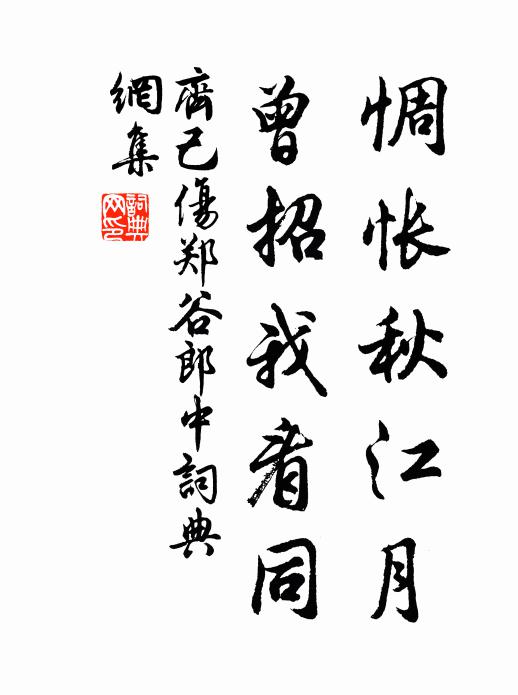 惆怅秋江月
曾招我看同
齊己傷郑谷郎中詞典
網集
詞典
网印